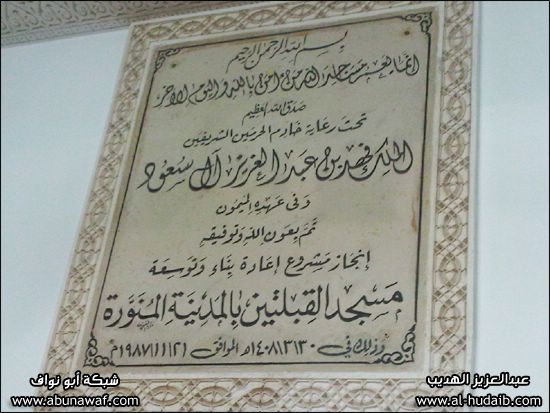 بسم الله الرحمن الرحيم
إنما يعمر مساجد الله من آمن بالله واليوم الآخر
صدق الله العظيم
تحت رعاية خادم الحرمين الشريفين
الملك فهد بن عبد العزيز آل سعود
وفي عهده الميمون
تم بعون الله وتوفيقه
إنجاز مشروع إعادة بناء وتوسعة
مسجد القبلتين بالمدينة المنورة
وذلك في ١٤٠٨/٣/٣٠هـ الموافق ١٩٨٧/١١/٢١م
شبكة أبو نواف
www.abunawaf.com
عبدالعزيز الهديب
www.al-hudaib.com